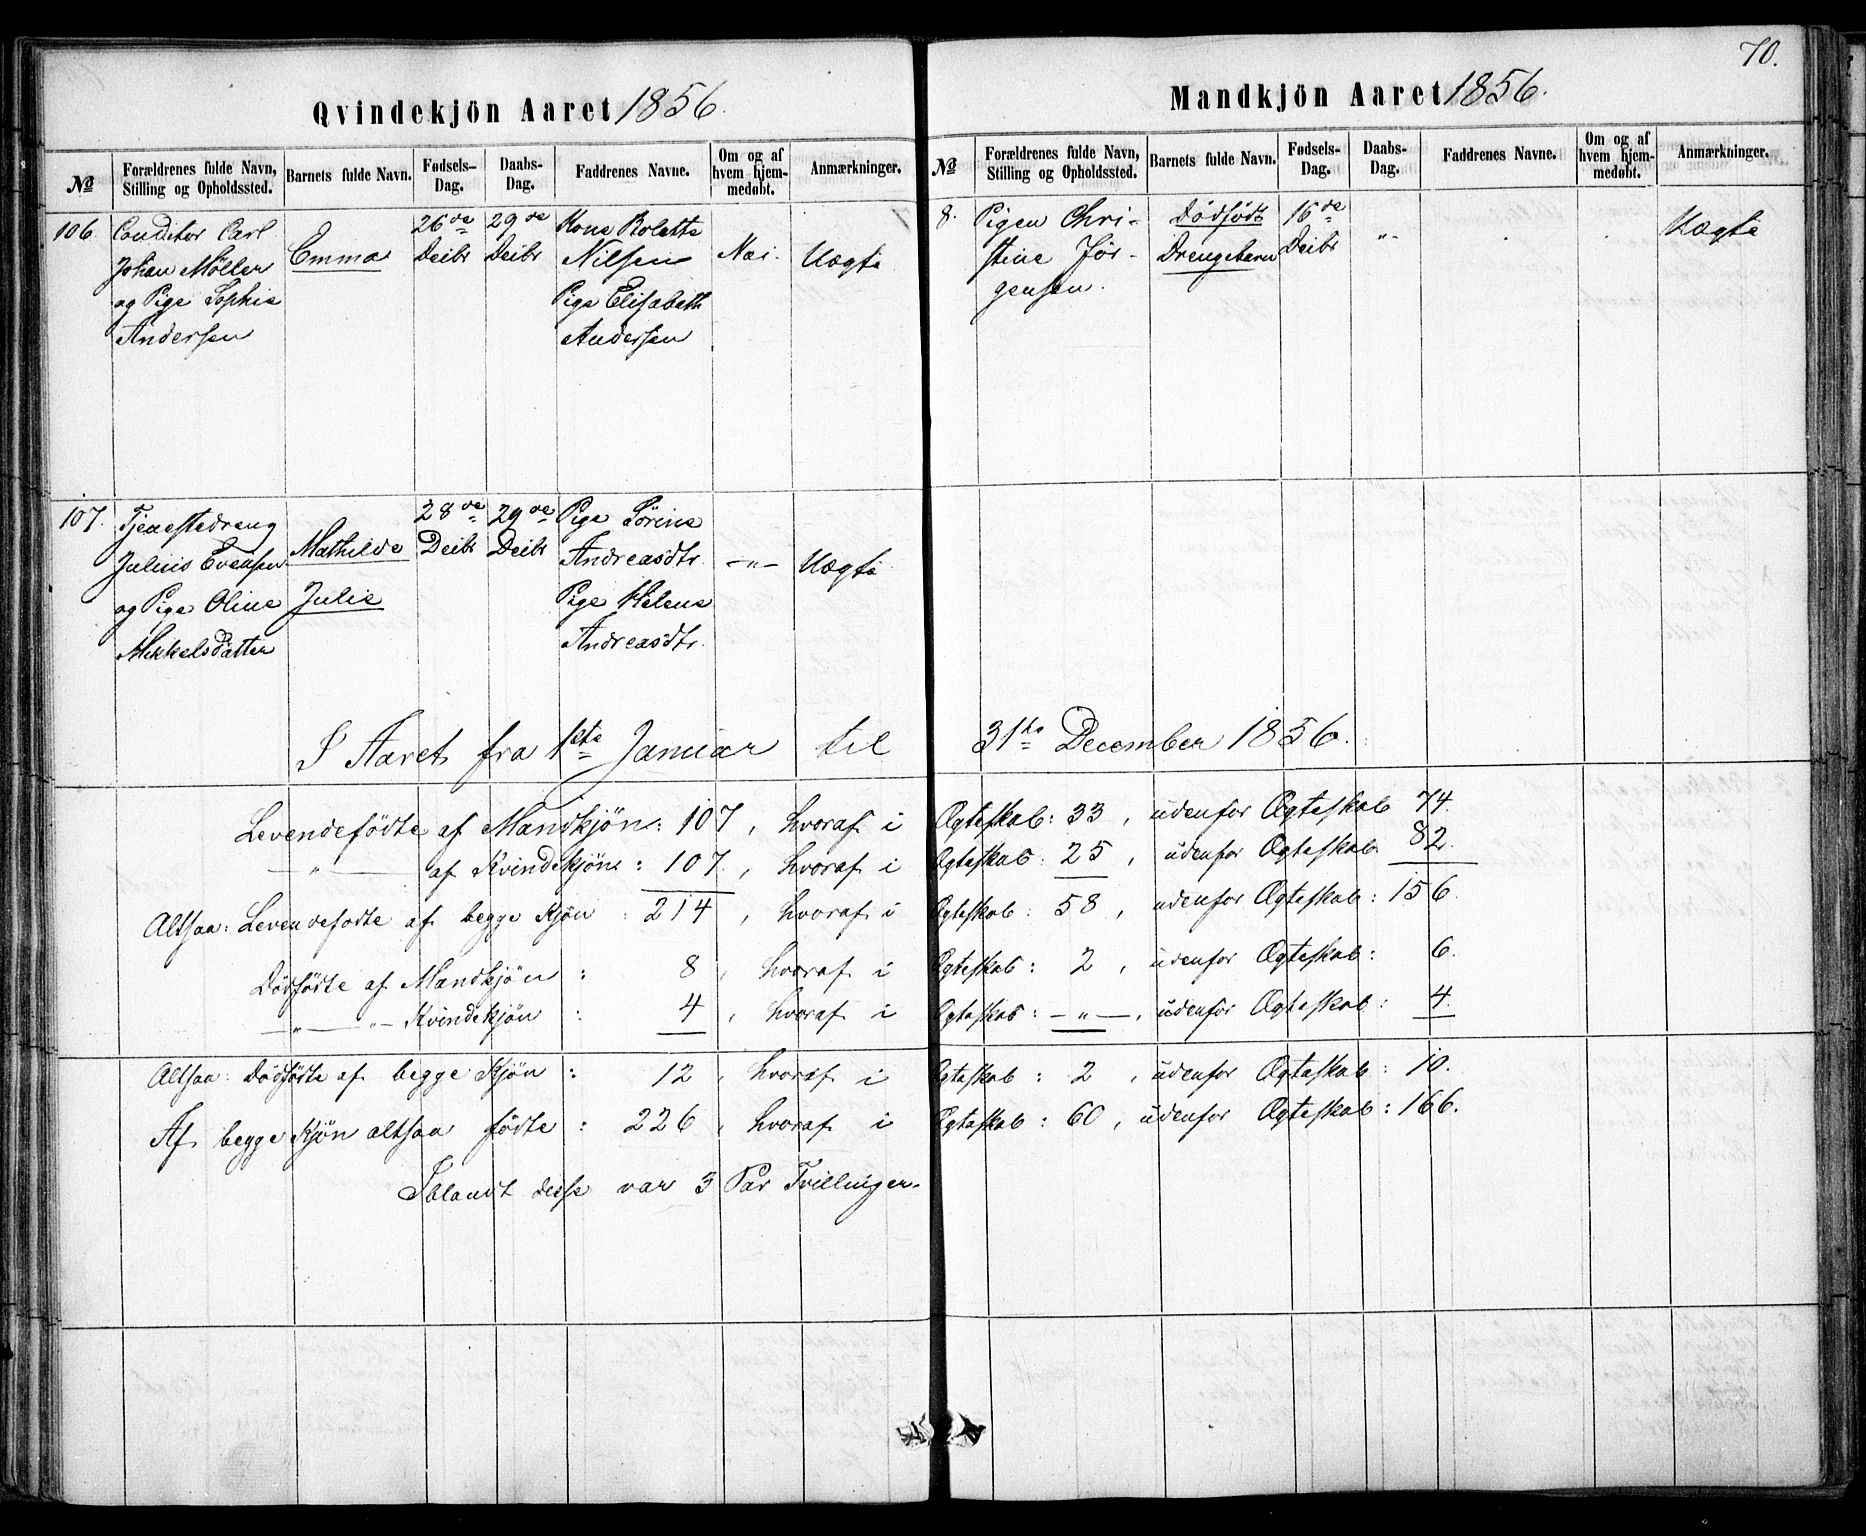 70.
Qvindekjön Aaret 1856.
№
Forældrenes fulde Navn, Stilling og Opholdssted.
Barnets fulde Navn.
Fødsels-Dag.
Daabs-Dag.
Faddrenes Navne.
Om og af hvem hjem-medøbt.
Anmærkninger.
106.
Conditor Carl
Johan Möller
og Pige Sophie
Andersen
Emma
26de
Decbr
29de
Decbr
Kone Bolette
Nilsen
Pige Elisabeth
Andersen
Nei.
Uægte
107.
Tjenestedreng
Julius Evensen
og Pige Oline
Mikkelsdatter
Mathilde
Julie
28de
Decbr
29de
Decbr
Pige Sörine
Andreasdtr.
Pige Helene
Andreasdtr.
—"—
Uægte
Mandkjön Aaret 1856.
№
Forældrenes fulde Navn, Stilling og Opholdssted.
Barnets fulde Navn.
Fødsels-Dag.
Daabs-Dag.
Faddrenes Navne.
Om og af hvem hjem-medøbt.
Anmærkninger.
8.
Pigen Chri-
stine Jör-
gensen.
Dödfödt
Drengebarn
16de
Decbr
"-
Uægte
I Aaret fra 1ste Januar til 31te December 1856.
Levendefödte af Mandkjön: 107, hvoraf i Ægteskab: 33, udenfor Ægteskab 74.
—"— af Kvindekjön: 107, hvoraf i Ægteskab: 25, udenfor Ægteskab 82.
Altsaa: Levendefödte af begge Kjön: 214, hvoraf i Ægteskab: 58, udenfor Ægteskab: 156.
Dödfödte af Mandkjön: 8, hvoraf i Ægteskab: 2, udenfor Ægteskab: 6.
—"— "— Kvindekjön: 4, hvoraf i Ægteskab: —"—, udenfor Ægteskab: 4.
Altsaa: Dödfödte af begge Kjön: 12, hvoraf i Ægteskab: 2, udenfor Ægteskab: 10.
Af begge Kjön altsaa födte: 226, hvoraf i Ægteskab: 60, udenfor Ægteskab: 166.
Iblandt disse var 3 Par Tvillinger.